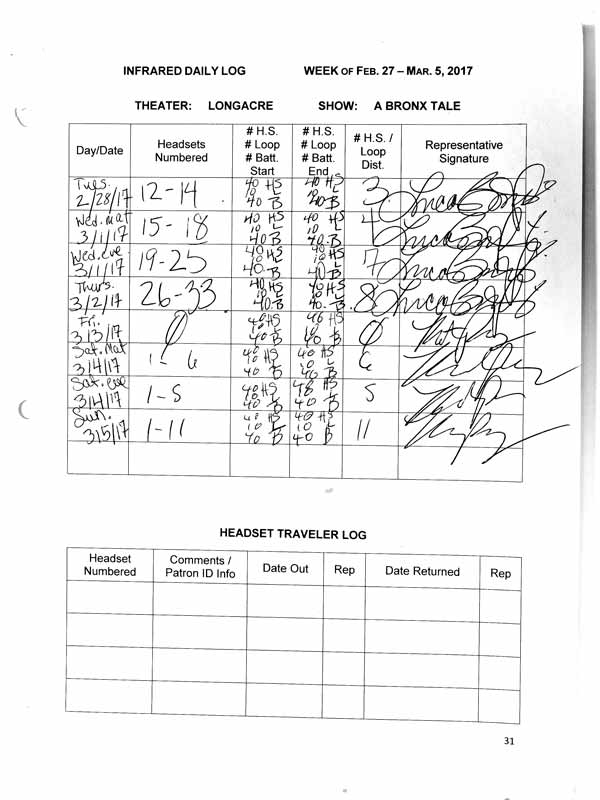 INFRARED DAILY LOG WEEK OF FEB. 27 – MAR. 5, 2017
THEATER: LONGACRE SHOW: A BRONX TALE
Day/Date Headsets Numbered # H.S. # Loop # Batt. Start # H.S. # Loop # Batt. End # H.S. / Loop Dist. Representative Signature
Tues. 2/28/17 12-14 40 HS 10 L 40 B 40 HS 10 L 40 B 3
Wed. mat 3/1/17 15-18 40 HS 10 L 40 B 40 HS 10 L 40 B 4
Wed. eve 3/1/17 19-25 40 HS 10 L 40 B 40 HS 10 L 40 B 7
Thurs. 3/2/17 26-33 40 HS 10 L 40 B 40 HS 10 L 40 B 8
Fri. 3/3/17 0 40 HS 10 L 40 B 40 HS 10 L 40 B 0
Sat. Mat 3/4/17 1-6 40 HS 10 L 40 B 40 HS 10 L 40 B 6
Sat. eve 3/4/17 1-5 40 HS 10 L 40 B 40 HS 10 L 40 B 5
Sun. 3/5/17 1-11 40 HS 10 L 40 B 40 HS 10 L 40 B 11
HEADSET TRAVELER LOG
Headset Numbered Comments / Patron ID Info Date Out Rep Date Returned Rep
31